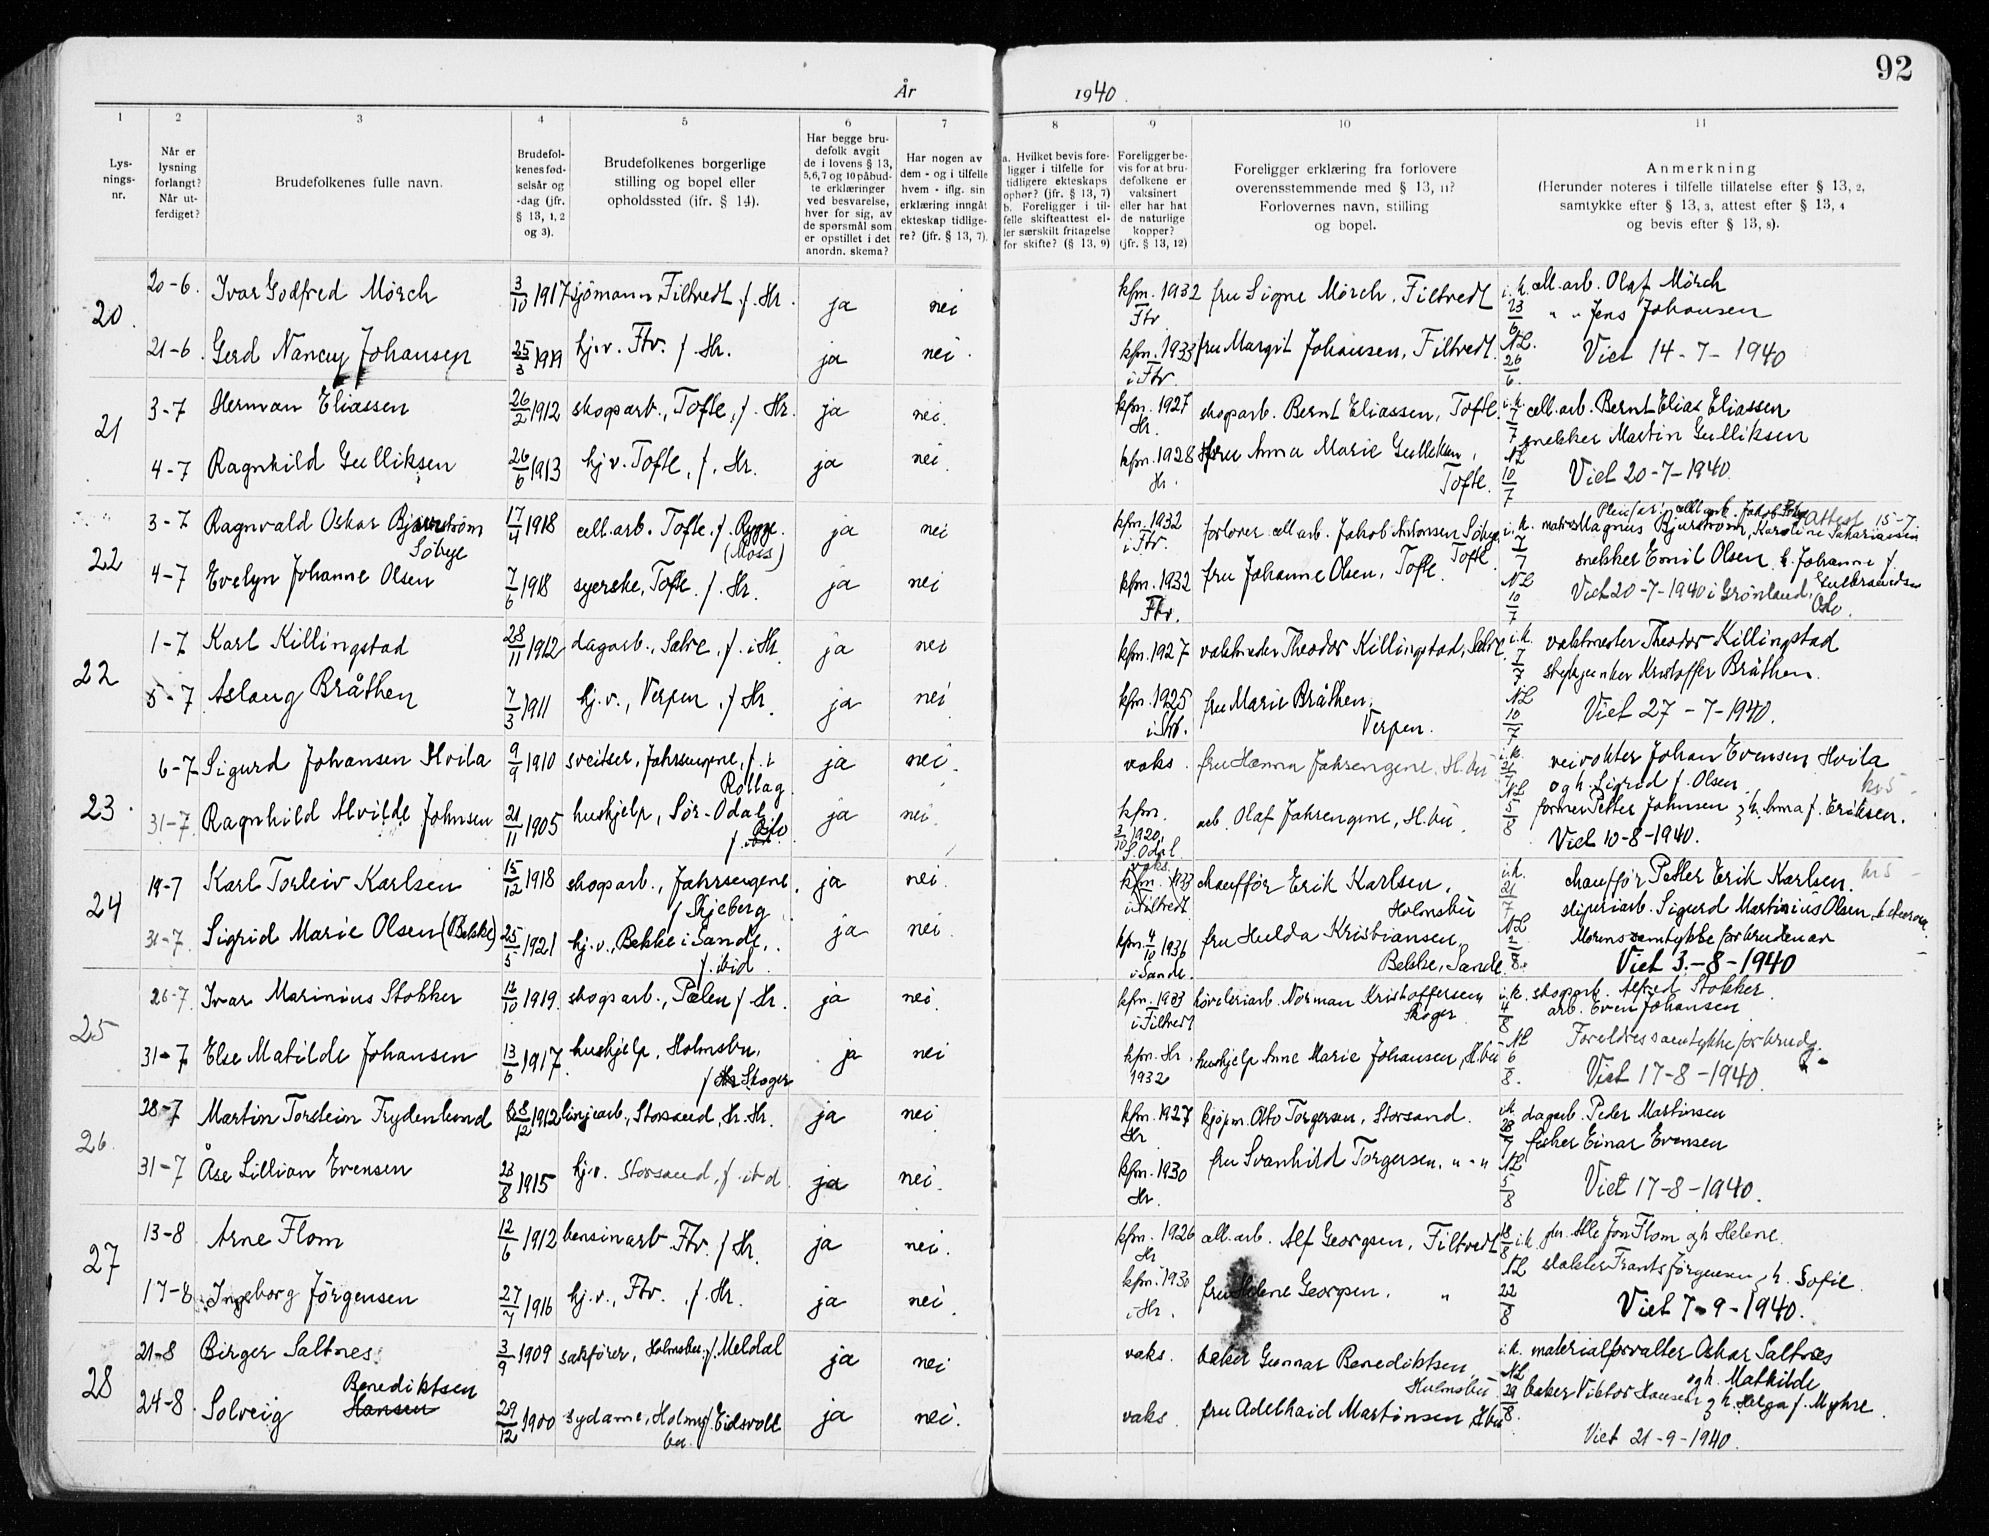 92
År 1940.
1 2 3 4 5 6 7 8 9 10 11
Lys-
nings-
nr.
Når er
lysning
forlangt?
Når ut-
ferdiget?
Brudefolkenes fulle navn.
Brudefol-
kenes fød-
selsår og
-dag (jfr.
§ 13, 1, 2
og 3).
Brudefolkenes borgerlige
stilling og bopel eller
opholdssted (ifr. § 14).
Har begge bru-
defolk avgit
de i lovens § 13,
5,6,7 og 10 påbud-
te erklæringer
ved besvarelse,
hver for sig, av
de spørsmål som
er opstillet i det
anordn. skema?
Har nogen av
dem - og i tilfelle
hvem - iflg. sin
erklæring inngåt
ekteskap tidlige-
re? (jfr. § 13, 7).
a. Hvilket bevis fore-
ligger i tilfelle for
tidligere ekteskaps
ophør? (jfr. § 13, 7)
b. Foreligger i til-
felle skifteattest el-
ler særskilt fritagelse
for skifte? (§ 13, 9)
Foreligger be-
vis for at bru-
defolkene er
vaksinert
eller har hat
de naturlige
kopper?
(jfr. § 13, 12)
Foreligger erklæring fra forlovere
overensstemmende med § 13, 11?
Forlovernes navn, stilling
og bopel.
Anmerkning
(Herunder noteres i tilfelle tillatelse efter § 13, 2,
samtykke efter § 13, 3, attest efter § 13, 4
og bevis efter § 13, 8).
20.
20-6. Ivar Godfred Mörch 3/10 1917 sjömann, Filtvedt, f. Hr. ja nei kfm. 1932 Ftv. fru Signe Mörch, Filtvedt i.k. 23/6 cell.arb. Olaf Mörch
21-6. Gerd Nancy Johansen 25/3 1919 hj.v. Ftv. f. Hr. ja nei. kfm. 1933 i Ftv. fru Margit Johansen, Filtvedt. NL. 26/6. " " Jens Johansen
Viet 14-7-1940
21
3-7 Herman Eliassen 26/2 1912 skogsarb., Tofte, f. Hr. ja nei. kfm. 1927 Hr. skogsarb. Bernt Eliassen, Tofte. i.k. 7/7 cell.arb. Bernt Elias Eliassen
4-7 Ragnhild Gulliksen 26/6 1913 hj.v. Tofte, f. Hr. ja nei. kfm. 1928 Hr. fru Anna Marie Gulliksen, Tofte. NL 10/7 snekker Martin Gulliksen
Viet 20-7-1940.
22
3-7 Ragnvald Oskar Bjurström 17/4 1918 cell.arb. Tofte. f. Rygge. (Moss) ja nei kfm. 1932 i Ftv. forlover cell arb. Jakob Antonsen Söbye, Tofte. i.k. 7/7
Söbye
Attest 15-7
Magnus Bjurström, Karoline Sakariassen
4-7 Evelyn Johanne Olsen 7/6 1918 syerske, Tofte. f. Hr. ja nei kfm. 1932 Ftv. fru Johanne Olsen, Tofte. NL 10/7 snekker Emil Olsen h. Johanne f. Gulbrandsen
Viet 20-7-1940 i Grønland, Oslo.
22
1-7 Karl Killingstad 28/11 1912 dagarb., Sætre, f. i Hr. ja nei kfm. 1927 vaktmester Theodor Killingstad, Sætre. i.k. 7/7 vaktmester Theodor Killingstad
5-7 Aslaug Bråthen 7/3 1911 hj.v., Verpen. f. Hr. ja nei kfm. 1925 fru Marie Bråthen, Verpen. NL 10/7 Kristoffer Bråthen.
Viet 27-7-1940.
23.
6-7 Sigurd Johansen Hvila 9/9 1910 sveitser, Jahrsengene, f. i Rollag ja nei. vaks. fru Hanna Jahrengene, H.bu i.k. 21/7 veivokter Johan Evensen Hvila
og h. Sigrid f. Olsen.
31-7. Ragnhild Alvilde Johnsen 21/11 1905 hushjelp, Sör-Odal. f. Oslo ja nei. kfm. 3/10 1920, S. Odal. vaks. arb. Olaf Jahrengene, H.bu. NL 5/8 former Petter Johnsen og h. Anna f. Eriksen.
Viet 10-8-1940.
24
19-7 Karl Torleiv Karlsen 15/12 1918 skogsarb., Jahrsengene, f. Skjeberg ja nei. kfm. 1933 i Filtvedt chaufför Erik Karlsen, Holmsbu i.k. 21/7 chaufför Petter Erik Karlsen.
31-7. Sigrid Marie Olsen (Bekke) 25/5 1921 hj.v., Bekke i Sande, f. ibid ja nei. kfm. 4/10 1936 i Sande. fru Hulda Kristiansen, Bekke, Sande NL 2/8. sliperiarb. Sigurd Martinius Olsen,
Morens samtykke for bruden av
Viet 3.-8-1940
25
26-7. Ivar Marinius Stokker 12/10 1919. skogsarb., Pælen f. Hr. ja nei. kfm. 1933 i Filtvedt høvleriarb. Norman Kristoffersen, Skoger i.k. 4/8 skogarb. Alfred Stokker.
31-7 Else Matilde Johansen 13/6 1917. hushjelp, Holmsbu, f. Skoger ja nei kfm. Hr. 1932 hushjelp Anne Marie Johansen, H.bu NL 6/8. arb. Even Johansen
Foreldres samtykke for brudg.
Viet 17-8-1940.
26.
28-7 Martin Torstein Frydenlund 28/12 1912 linjearb., Storsand, Hr. Hr. ja nei kfm. 1927 Hr kjöpm. Otto Torgersen, Storsand. i.k. 28/7 dagarb. Peder Martinsen
31-7 Åse Lillian Evensen 23/8 1915 hj.v. Storsand, f. ibid. ja nei. kfm. 1930 Hr. fru Svanhild Torgersen, " - " NL 5/8 fisker Einar Evensen
Viet 17-8-1940.
27
13-8 Arne Flom 12/6 1912 bensinarb. Ftv. f. Hr. ja nei. kfm. 1926 Hr cell.arb. Alf Georgsen, Filtvedt 18/8 i.k. Jon Flom og h. Helene.
17-8 Ingeborg Jörgensen 27/7 1916 hj.v., Ftv. f. Hr. ja nei. kfm. 1930 i Hr. fru Helene Georgsen. " NL 22/8 slakter Frants Jörgensen og h. Sofie.
Viet 7-9-1940.
28
21-8 Birger Saltnes 3/9 1909 sakförer, Holmsbu, f. Meldal ja nei vaks. baker Gunnar Benediktsen, Holmsbu i.k. materialforvalter Oskar Saltnes
og h. Mathilde
24-8. Solveig Hansen Benediktsen 29/12 1900 sydame, Holmsbu. f. Eidsvoll ja nei. vaks. fru Adelhaid Martinsen, H.bu NL 29/8. baker Viktor Hansen og h. Helga f. Myhre.
Viet 21-9-1940.